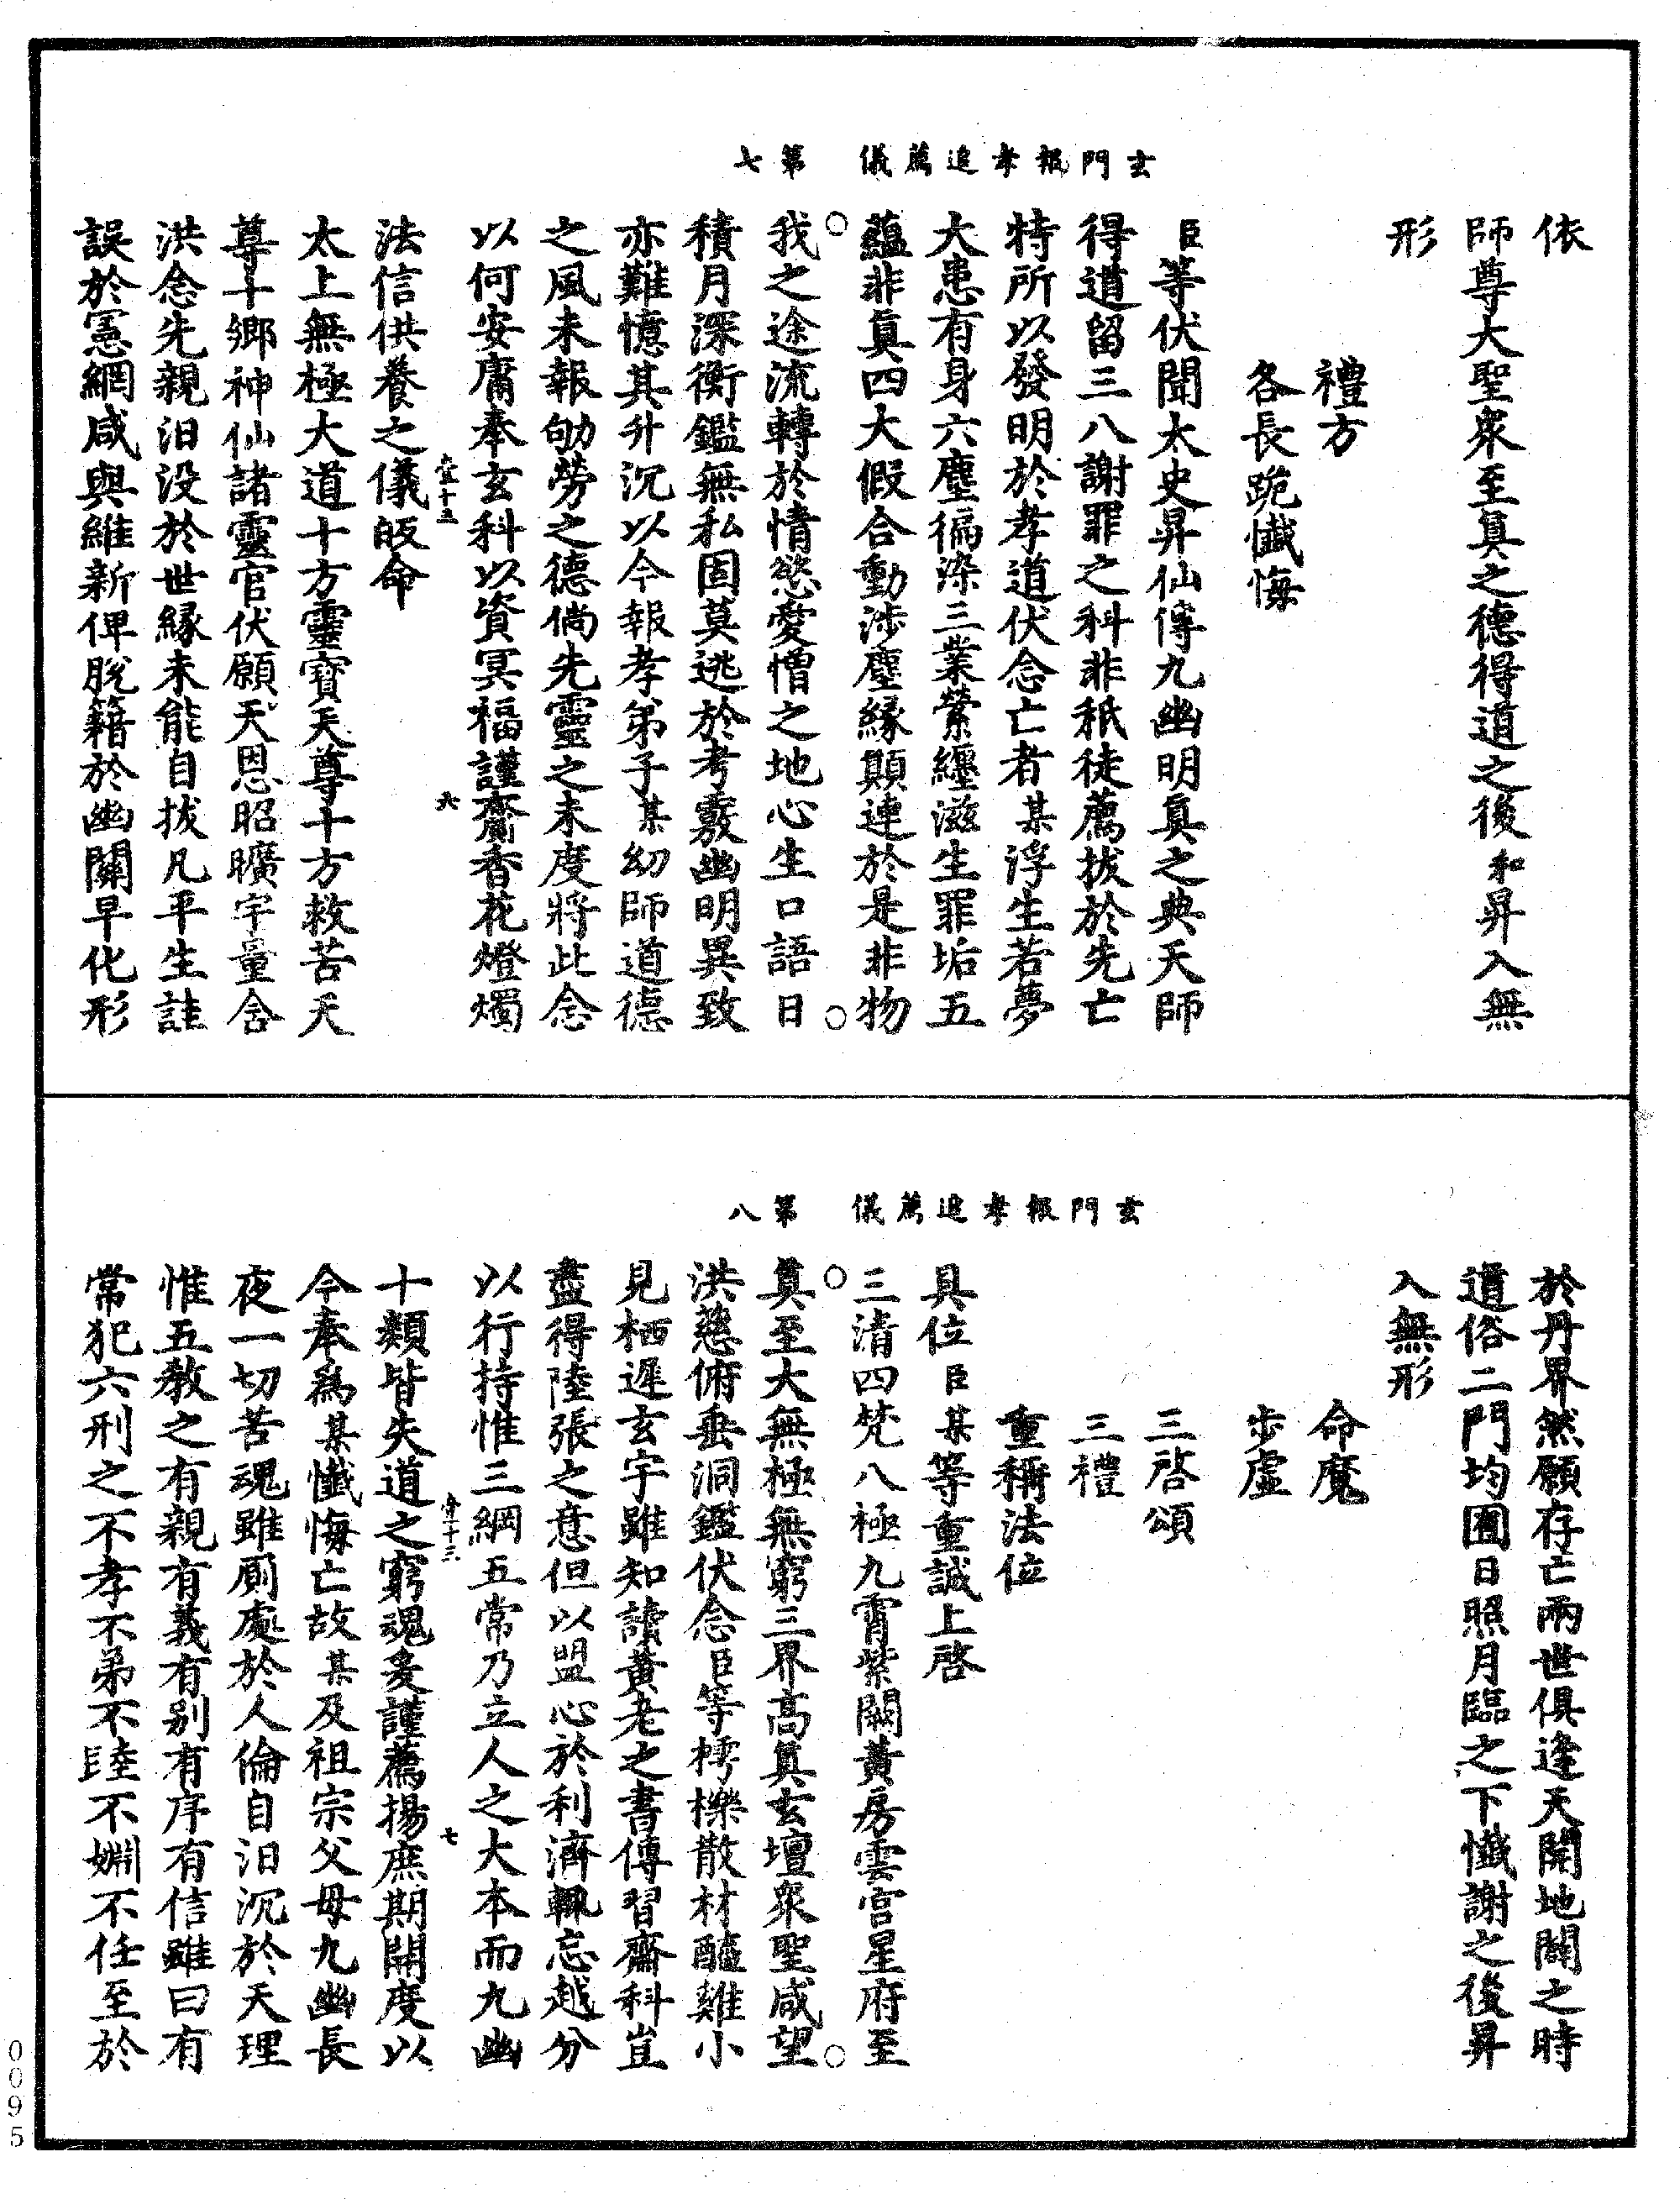 玄門報孝追薦儀　第七
依
師尊大聖衆至真之德得道之後和昇入無
形
禮方
各長跪懺悔
臣等伏聞太史昇仙傳九幽明真之典天師
得道留三八謝罪之科非秖徒薦拔於先亡
特所以發明於孝道伏念亡者某浮生若夢
大患有身六塵徧染三業縈纏滋生罪垢五
蘊非真四大假合動涉塵緣顛連於是非物
我之途流轉於情慾愛憎之地心生口語日
積月深衡鑑無私固莫逃於考覈幽明異致
亦難憶其升沉以今報孝弟子某幼師道德
之風未報劬勞之德倘先靈之未度將此念
以何安庸奉玄科以資冥福謹齋香花燈燭
六
法信供養之儀皈命
太上無極大道十方靈寶天尊十方救苦天
尊十鄉神仙諸靈官伏願天恩昭曠宇量含
洪念先親汩没於世緣未能自拔凡平生詿
誤於憲網咸與維新俾脫籍於幽關早化形
玄門報孝追薦儀　第八
於丹界然願存亡兩世俱逢天開地闢之時
道俗二門均囿日照月臨之下懺謝之後昇
入無形
命魔
步虛
三啓頌
三禮
重稱法位
具位臣某等重誠上啓
三清四梵八極九霄紫闕黃房雲宮星府至
真至大無極無窮三界高真玄壇衆聖咸望
洪慈俯垂洞鑑伏念臣等樗櫟散材醯雞小
見栖遲玄宇雖知讀黃老之書傳習齋科豈
盡得陸張之意但以盟心於利濟輒忘越分
以行持惟三綱五常乃立人之大本而九幽
七
十類皆失道之窮魂爰謹薦揚庶期開度以
今奉爲某懺悔亡故某及祖宗父母九幽長
夜一切苦魂雖厠處於人倫自汩沉於天理
惟五教之有親有義有别有序有信雖曰有
常犯六刑之不孝不弟不睦不婣不任至於
0095